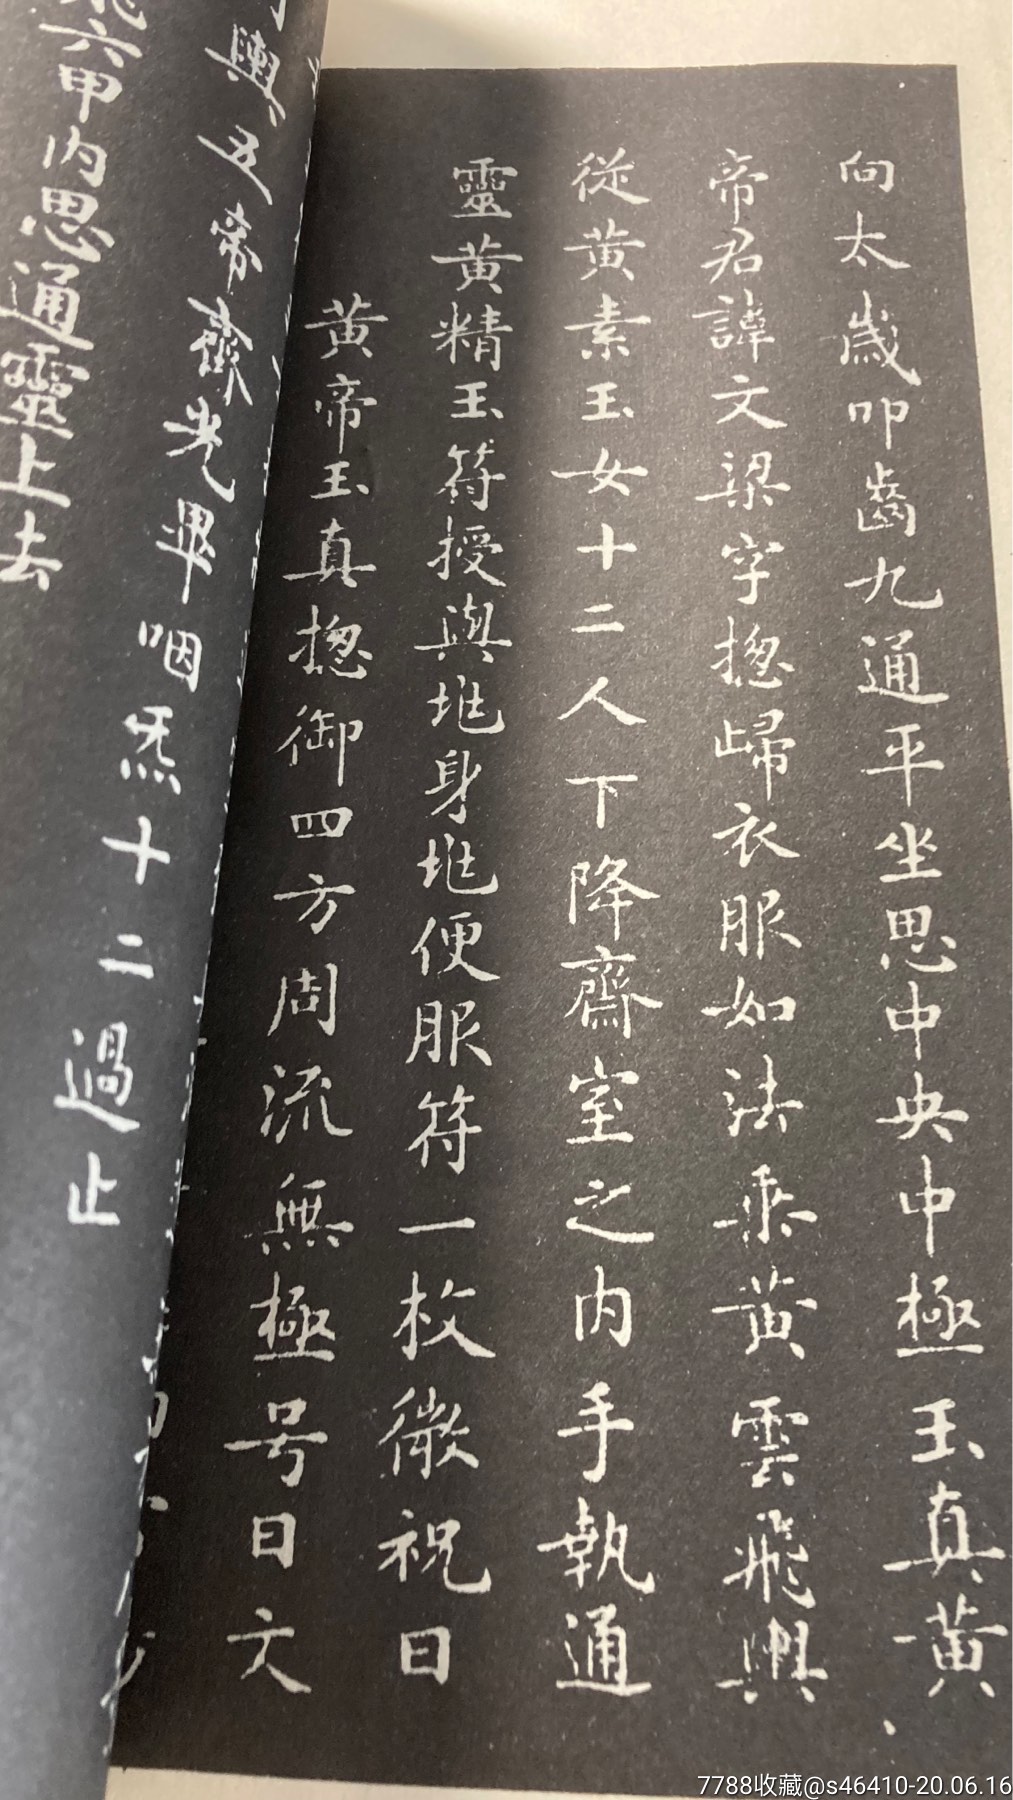 向太歲叩齒九通平坐思中央中極玉真黃
帝君諱文梁字揔歸衣服如法乘黃雲飛輿
從黃素玉女十二人下降齋室之內手執通
靈黃精玉符授與兆身兆便服符一枚微祝曰
黃帝玉真揔御四方周流無極号曰文
輿五帝齊光畢咽炁十二過止
六甲內思通靈上去
7788收藏@s46410-20.06.16